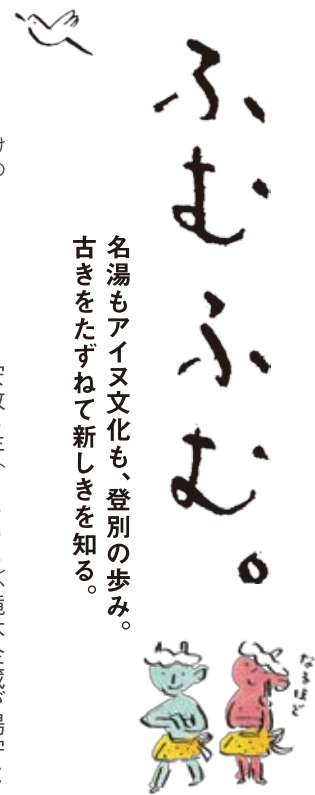 ふむふむ。
名湯もアイヌ文化も、登別の歩み。
古きをたずねて新しきを知る。
なるほど